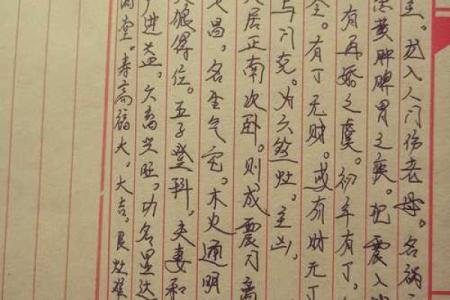 主。入人门伤老母。名祸
黄肿脾胃之疾。犯震入
有再婚之虞。初年有丁。
全。有丁无财。或有财无丁
与门克。为六煞灶。主凶。
居正南次卧。则成震门离
昌。名生气宅。木火通明
得位。五子登科。夫妻和
进益。六畜兴旺。功名显达
满堂。寿高福大。大吉。艮灶